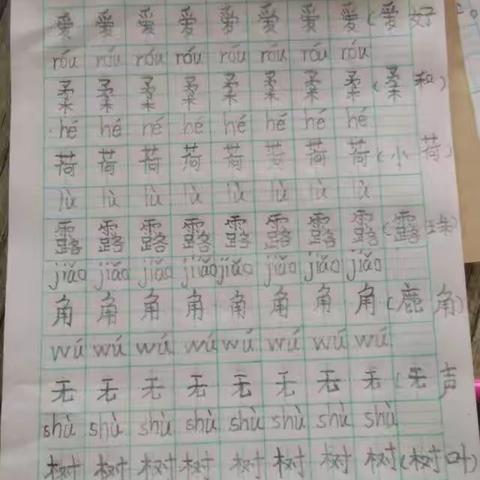 爱 爱 爱 爱 爱 爱 爱 爱 (爱好
róu róu róu róu róu róu róu róu
柔 柔 柔 柔 柔 柔 柔 柔 (柔和)
hé hé hé hé hé hé hé hé
荷 荷 荷 荷 荷 荷 荷 荷 (小荷)
lù lù lù lù lù lù lù lù
露 露 露 露 露 露 露 露 (露珠)
jiǎo jiǎo jiǎo jiǎo jiǎo jiǎo jiǎo jiǎo
角 角 角 角 角 角 角 角 (鹿角)
wú wú wú wú wú wú wú wú
无 无 无 无 无 无 无 无 (无声
shù shù shù shù shù shù shù shù
树 树 树 树 树 树 树 树 (树叶)